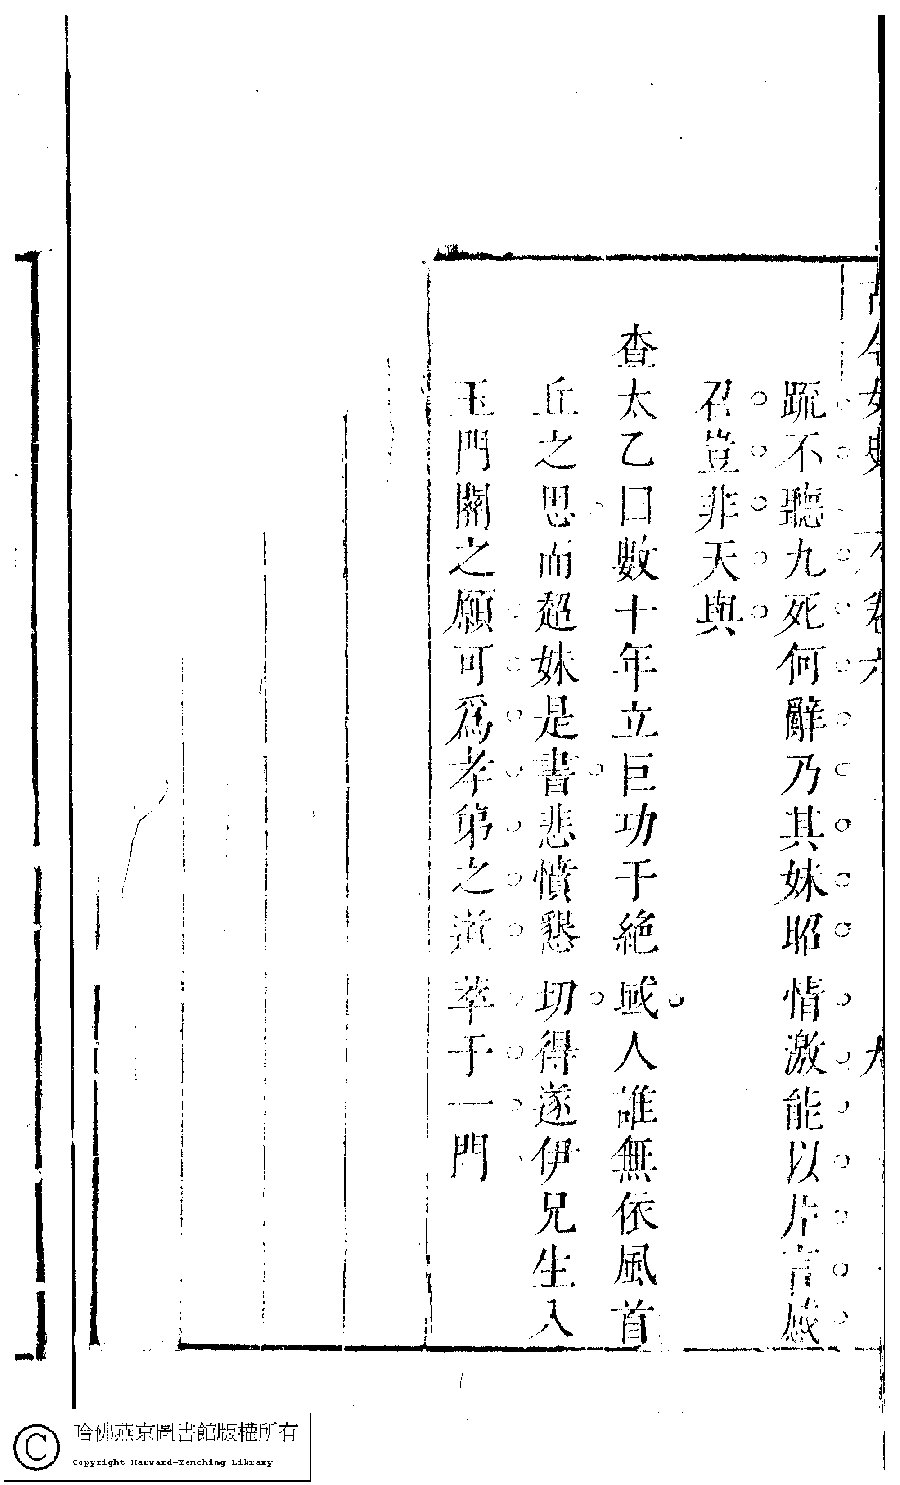 古今女史 卷六 九
䟽不聽九死何辭乃其妹昭情激能以片言感
召豈非天與
查太乙曰數十年立巨功于絶域人誰無依風首
丘之思而超妹是書悲憤懇切得遂伊兄生入
玉門關之願可爲孝弟之道萃于一門
哈佛燕京圖書館版權所有
Copyright Harvard-Yenching Library